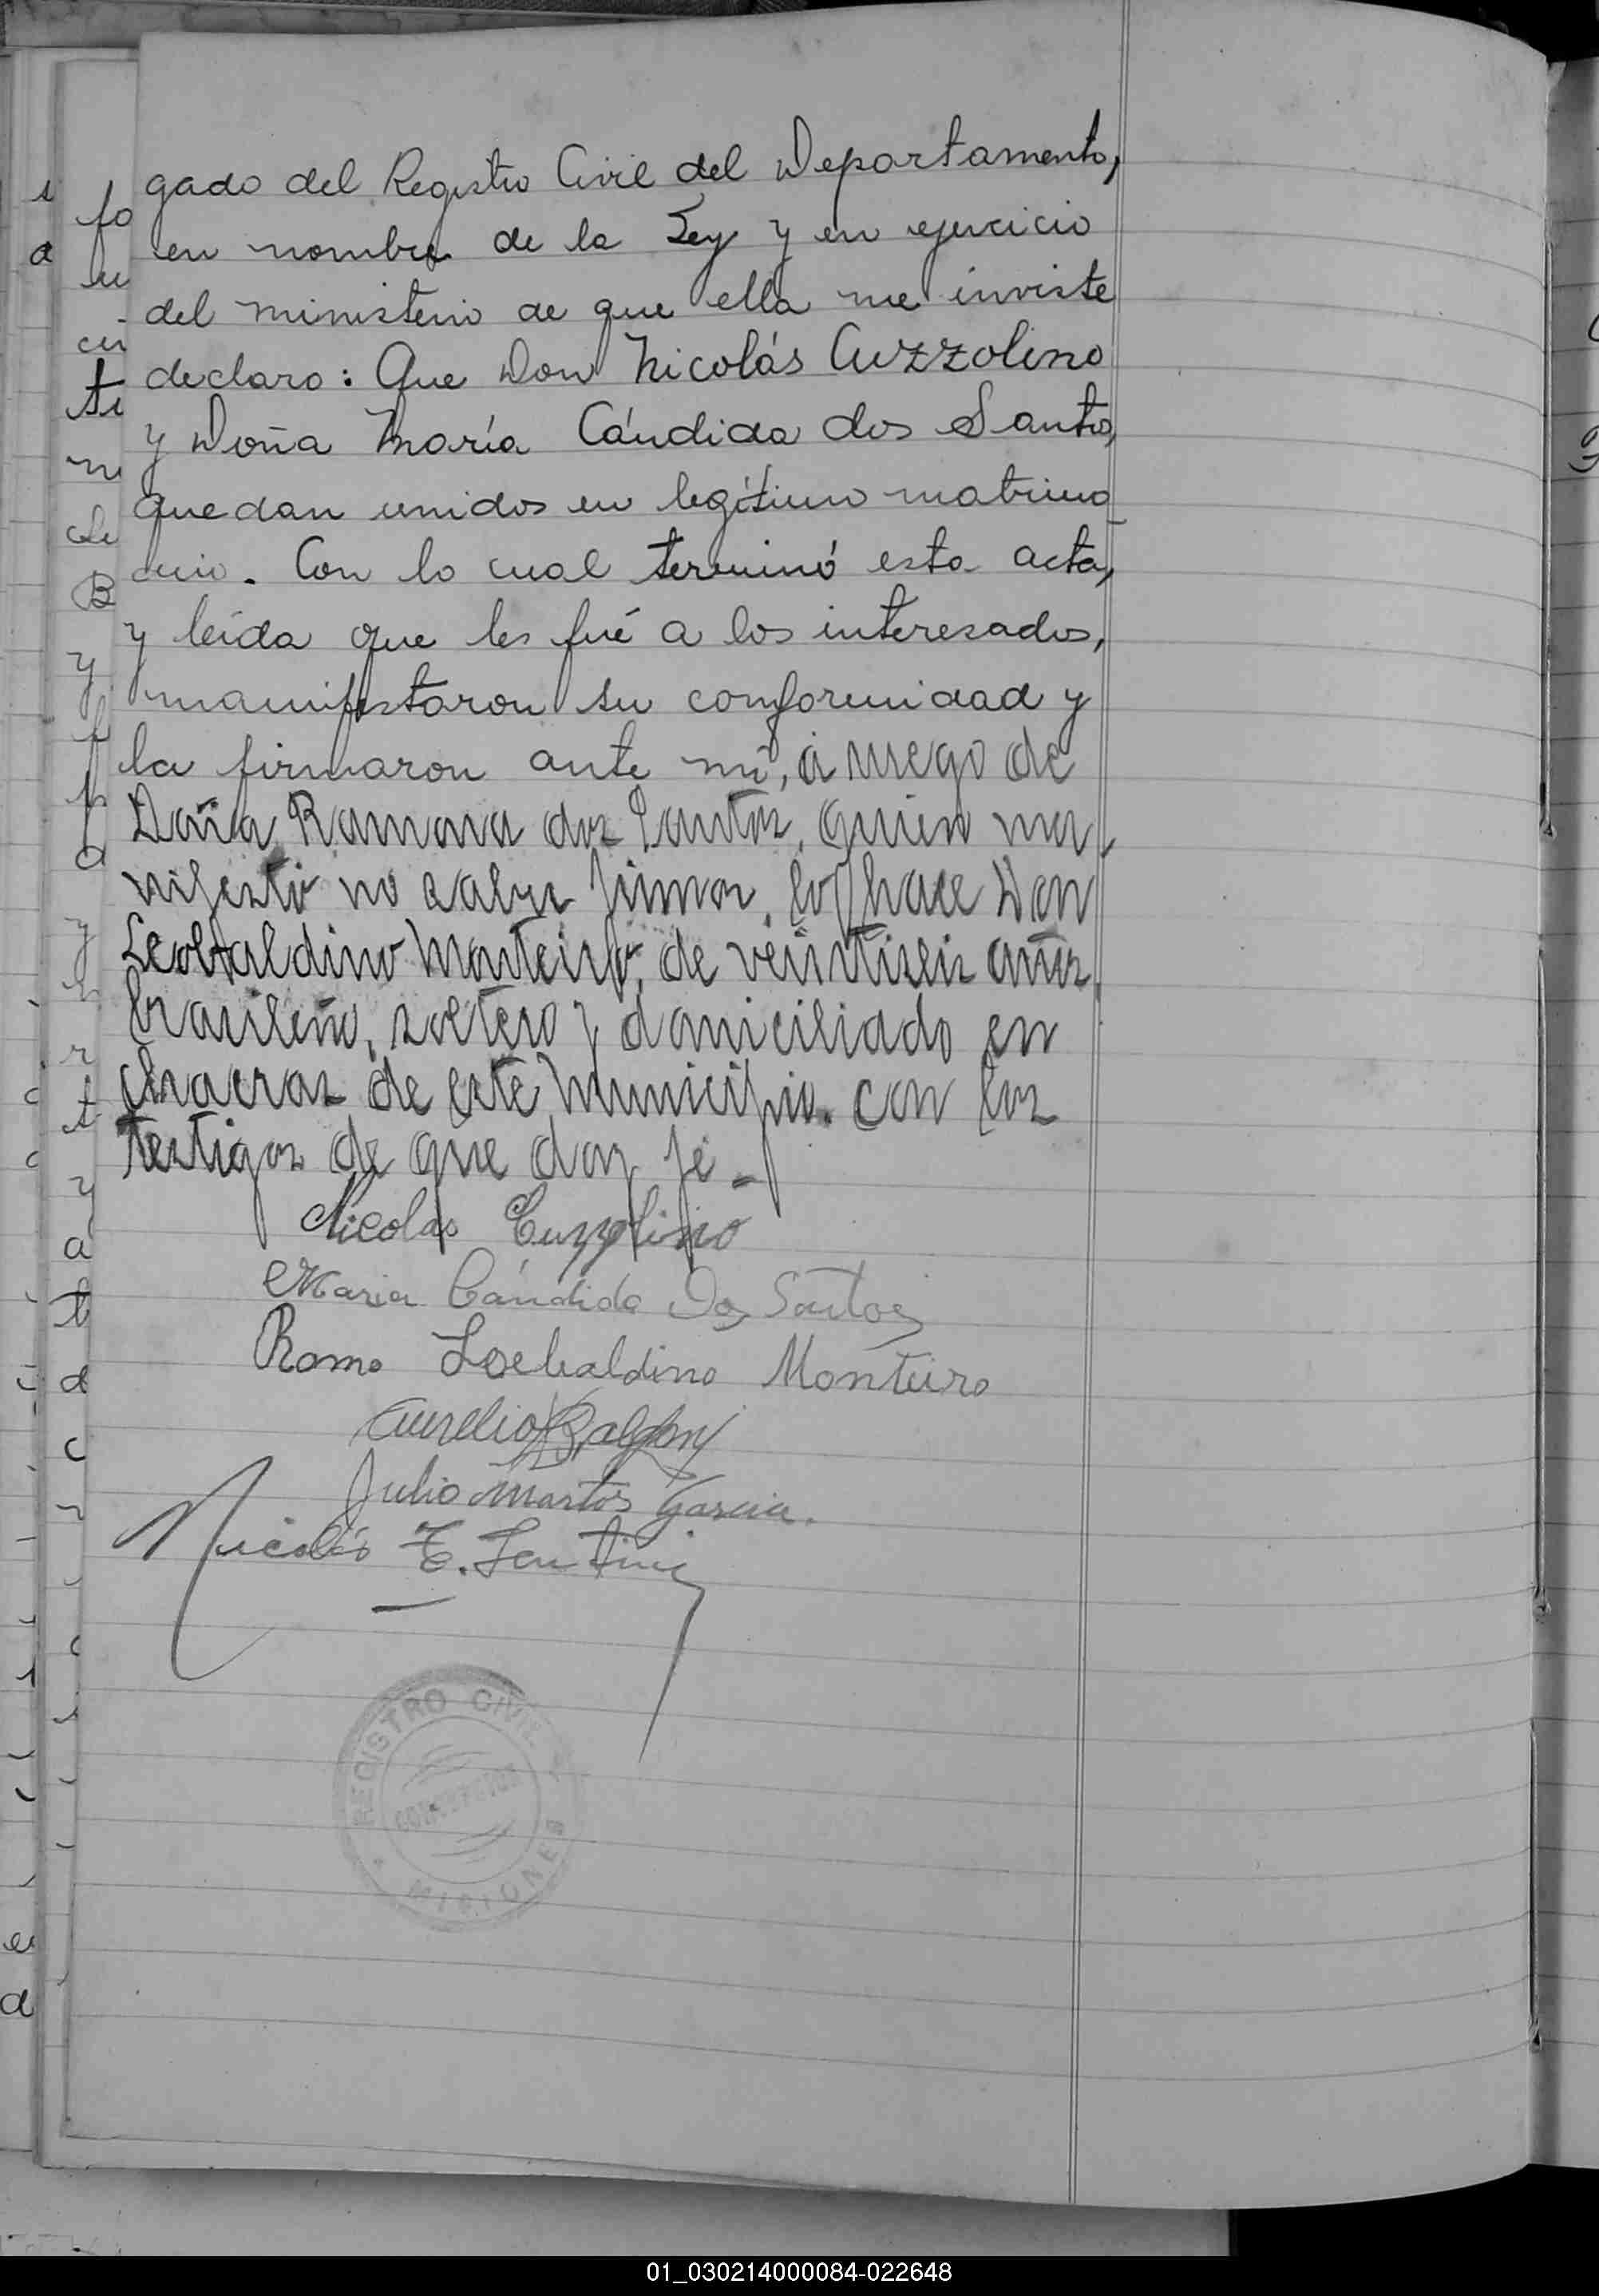 gado del Registro Civil del Departamento,
en nombre de la Ley y en ejercicio
del ministerio de que ella me inviste
declaro: Que Don Nicolás Cuzzolino
y Doña María Cándida dos Santos,
quedan unidos en legítimo matrimo-
nio. Con lo cual terminó esta acta,
y leída que les fué a los interesados,
manifestaron su conformidad y
la firmaron ante mí, a ruego de
Doña Ramona dos Santos, quien ma-
nifestó no saber firmar, lo hace Don
Leobaldino Monteiro, de veintiseis años,
brasileño, soltero y domiciliado en
chacras de este Municipio. con los
testigos de que doy fé.-
Nicolas Cuzzolino
Maria Cándida Dos Santos
Romo Loebaldino Monteiro
Aurelio
Julio Martos Garcia.
Nicolás
REGISTRO CIVIL
MISIONES
01_030214000084-022648